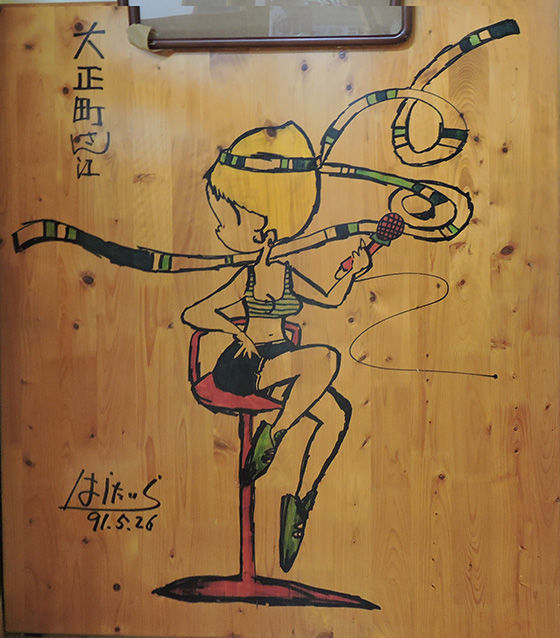 大正町さん江
はらたいら
91.5.26